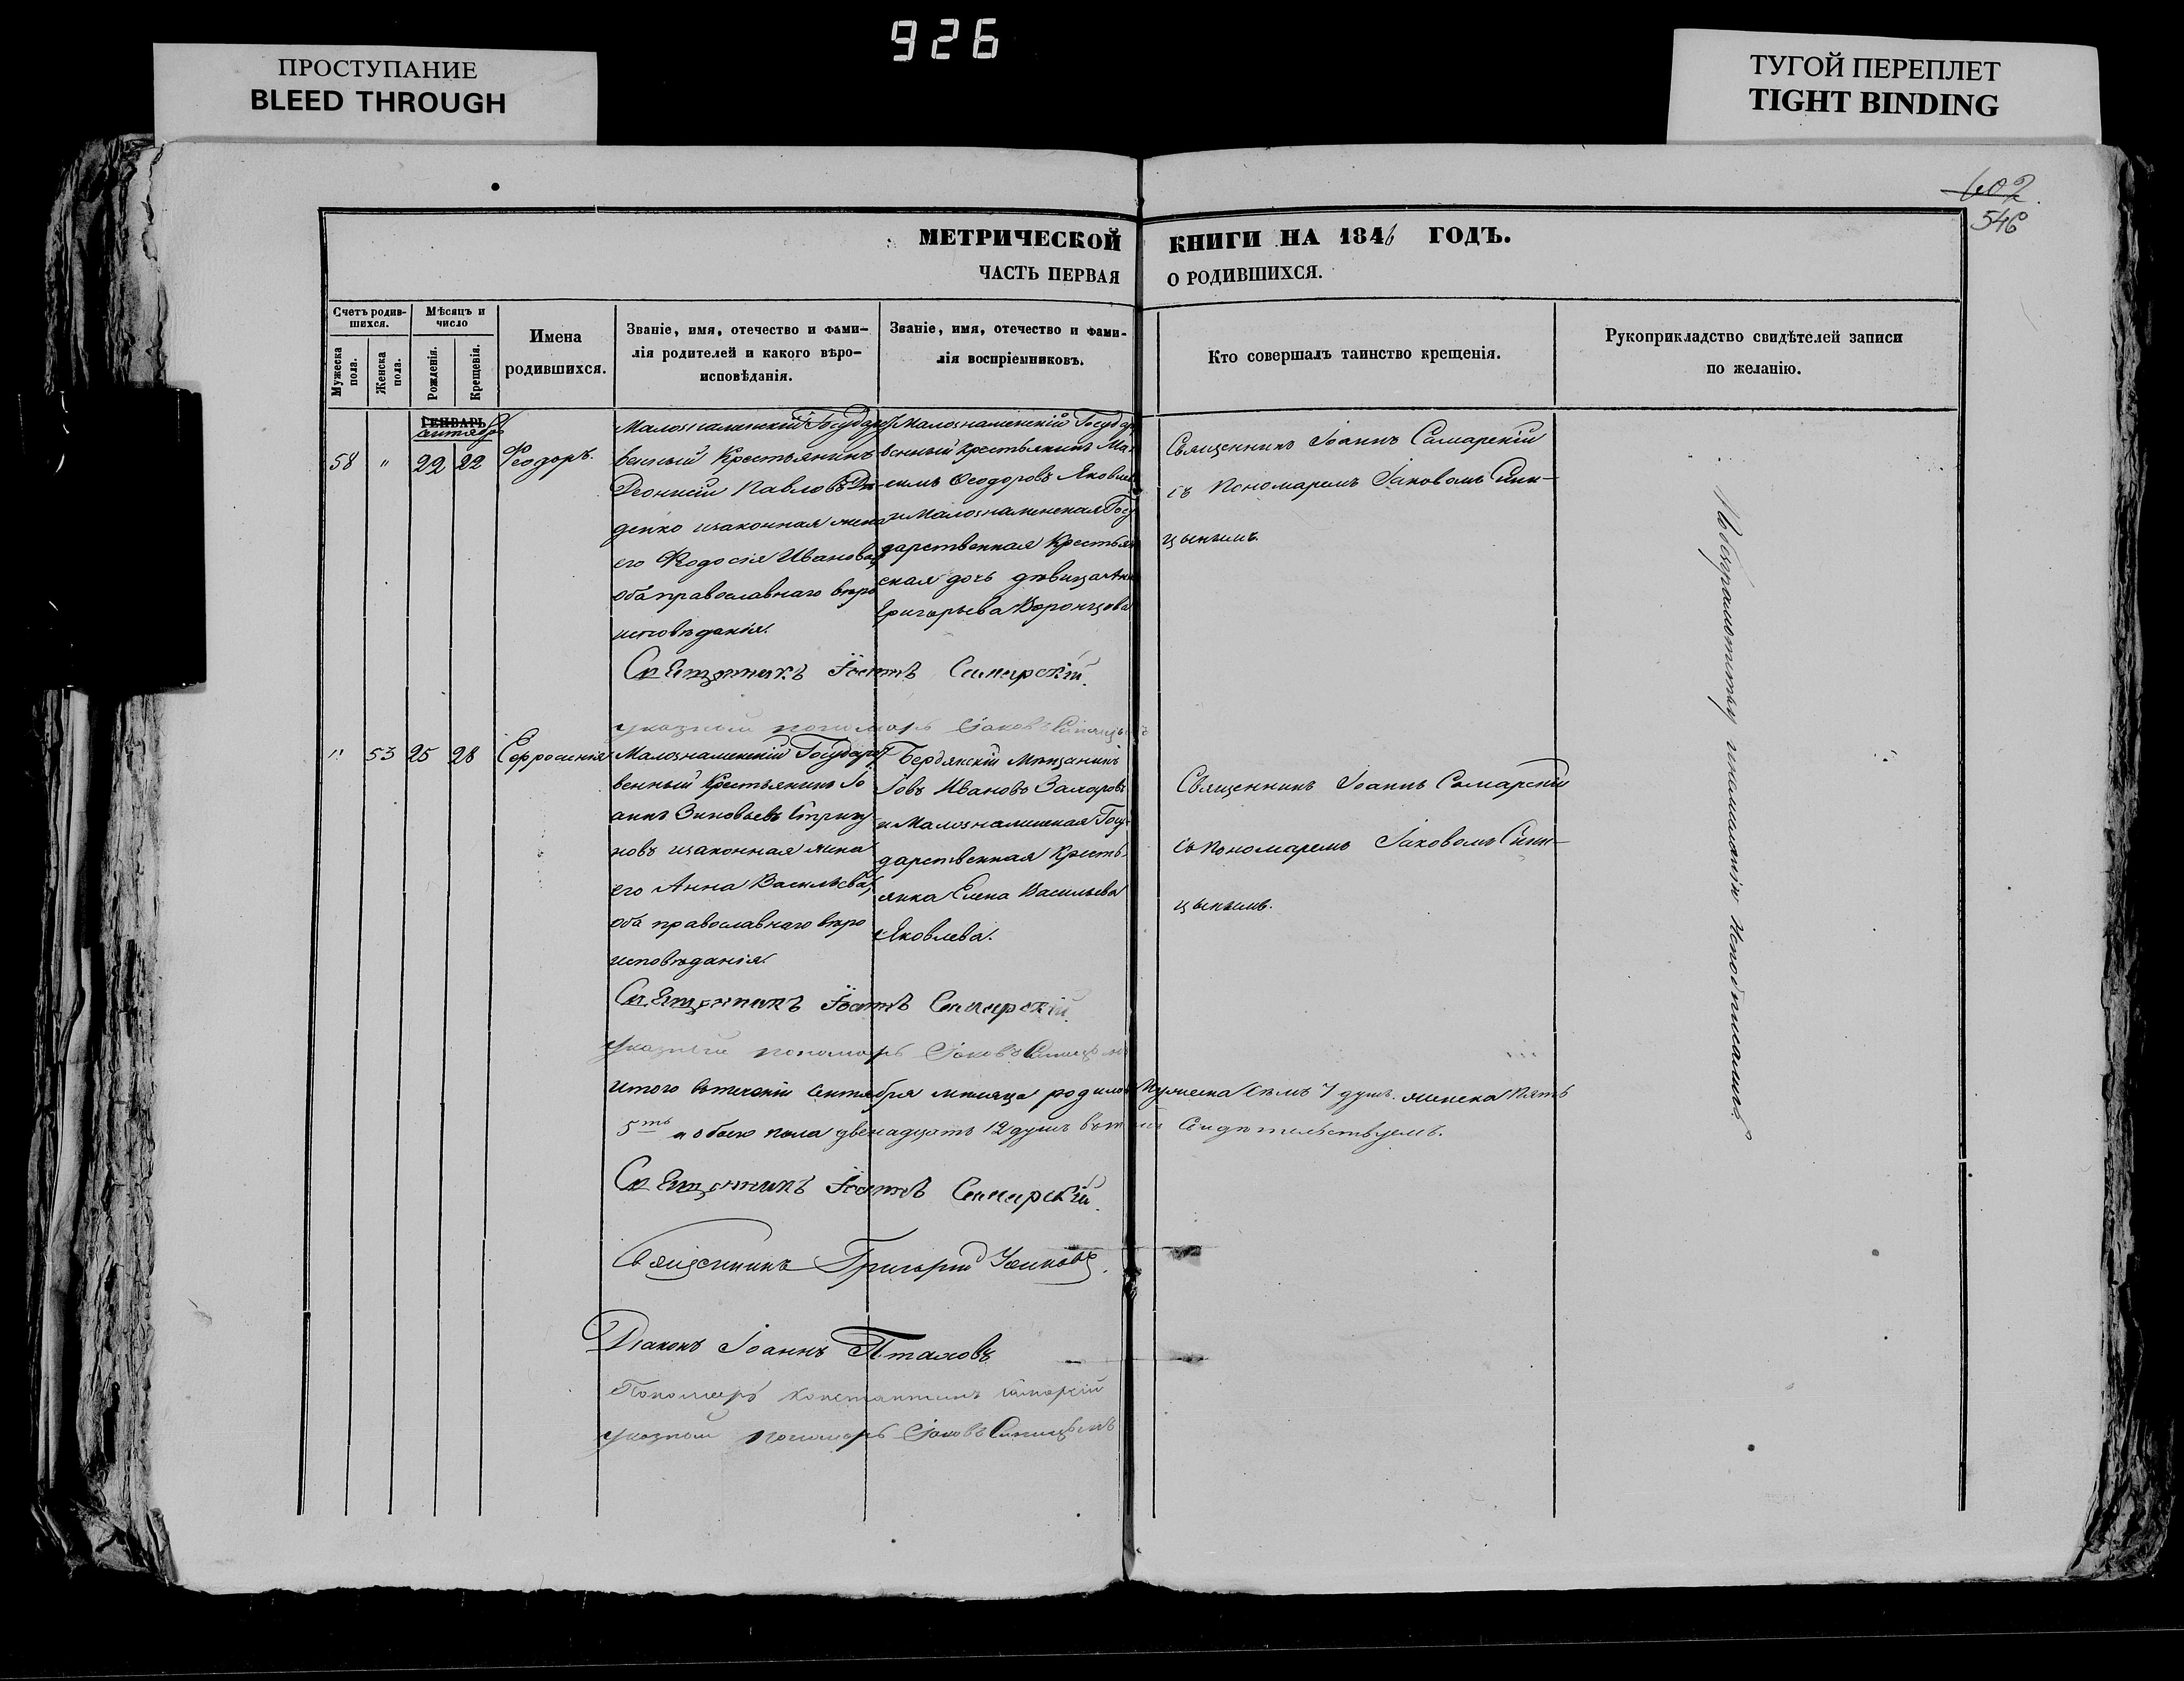 926
ПРОСТУПАНИЕ
BLEED THROUGH
ТУГОЙ ПЕРЕПЛЕТ
TIGHT BINDING
602
546
МЕТРИЧЕСКОЙ КНИГИ НА 1846 ГОДЪ.
ЧАСТЬ ПЕРВАЯ О РОДИВШИХСЯ.
Счетъ родив-
шихся.
Мужеска пола.
Женска пола.
Мѣсяцъ и
число
Рожденія.
Крещенія.
Имена
родившихся.
Званіе, имя, отечество и фами-
лія родителей и какого вѣро-
исповѣданія.
Званіе, имя, отечество и фами-
лія воспріемниковъ.
Кто совершалъ таинство крещенія.
Рукоприкладство свидѣтелей записи
по желанію.
ГЕНВАРЬ
58 " 22 22 Ѳеодоръ.
Малознаменскій Государст
венный Крестьянинъ
Діонисій Павловъ
денко изаконная жена
его Ѳеодосія Иванова
оба православнаго вѣро
исповѣданія.
Малознаменскій Государ
венный крестьянинъ Мак
симъ Ѳеодоровъ Яковлев
и Малознаменская Госу
дарственная Крестьян
ская дочь дѣвица Анн
Григорьева Воронцова
Священникъ Іоаннъ Самарскій
съ Пономаремъ Іаковомъ Сини-
цынымъ.
Священникъ Іоаннъ Самарскій.
указный пономарь Іаковъ Синицынъ
" 53 25 28 Ефросинія
Малознаменскій Государст
венный Крестьянинъ Іо
аннъ Зиновьевъ Стригу
новъ изаконная жена
его Анна Васильева,
оба православнаго вѣро
исповѣданія.
Бердянскій Мѣщанинъ
Іовъ Ивановъ Захаровъ
и Малознаменская Госу-
дарственная Кресть-
янка Елена Васильева
Яковлева.
Священникъ Іоаннъ Самарскій
съ Пономаремъ Іаковомъ Сини-
цынымъ.
Священникъ Іоаннъ Самарскій.
указный пономарь Іаковъ Синицынъ
Итого втеченіи Сентября мѣсяца родилось Мужеска семь 7 душъ. женска пять
5ть а обоего пола двенадцать 12 душъ вътомъ Свидѣтельствуемъ.
Священникъ Іоаннъ Самарскій.
Священникъ Григорій
Діаконъ Іоаннъ
Пономарь Константинъ Самарскій
указный пономарь Іаковъ Синицынъ